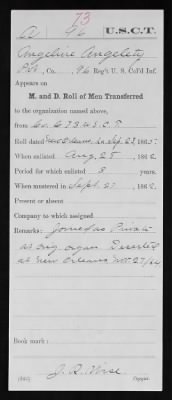 73
A 96 U.S.C.T.
Angeline Angelety
Pvt, Co. , 96 Reg't U. S. Col'd Inf.
Appears on
M. and D. Roll of Men Transferred
to the organization named above,
from Co. C 73 U.S.C.T.
Roll dated New Orleans La Sep. 23, 1865.
When enlisted Aug. 25, 1862.
Period for which enlisted 3 years.
When mustered in Sept. 27, 1862.
Present or absent
Company to which assigned
Remarks: Joined as Private
at org. organ Deserted
at New Orleans Nov 27/64
Book mark:
J. R. Wise
Copyist.